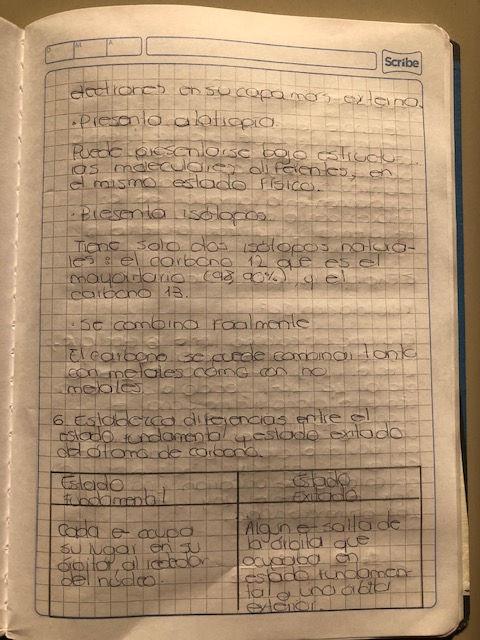 D M A
Scribe
electrones en su capa mas externa.
· Presenta alotropia.
Puede presentarse bajo estructu-
ras moleculares diferentes, en
el mismo estado físico.
· Presenta isótopos.
Tiene solo dos isótopos natura-
les: el carbono 12 que es el
mayoritario (98,90%) y el
carbono 13.
· Se combina facilmente
El carbono se puede combinar tanto
con metales como con no
metales.
6. Establezca diferencias entre el
estado fundamental y estado exitado
del átomo de carbono.
Estado
Fundamental
Estado
Exitado
Cada e- ocupa
su lugar en su
orbita, al rededor
del núcleo.
Algun e- salta de
la órbita que
ocupaba en
estado fundamen-
tal a una orbita
exterior.